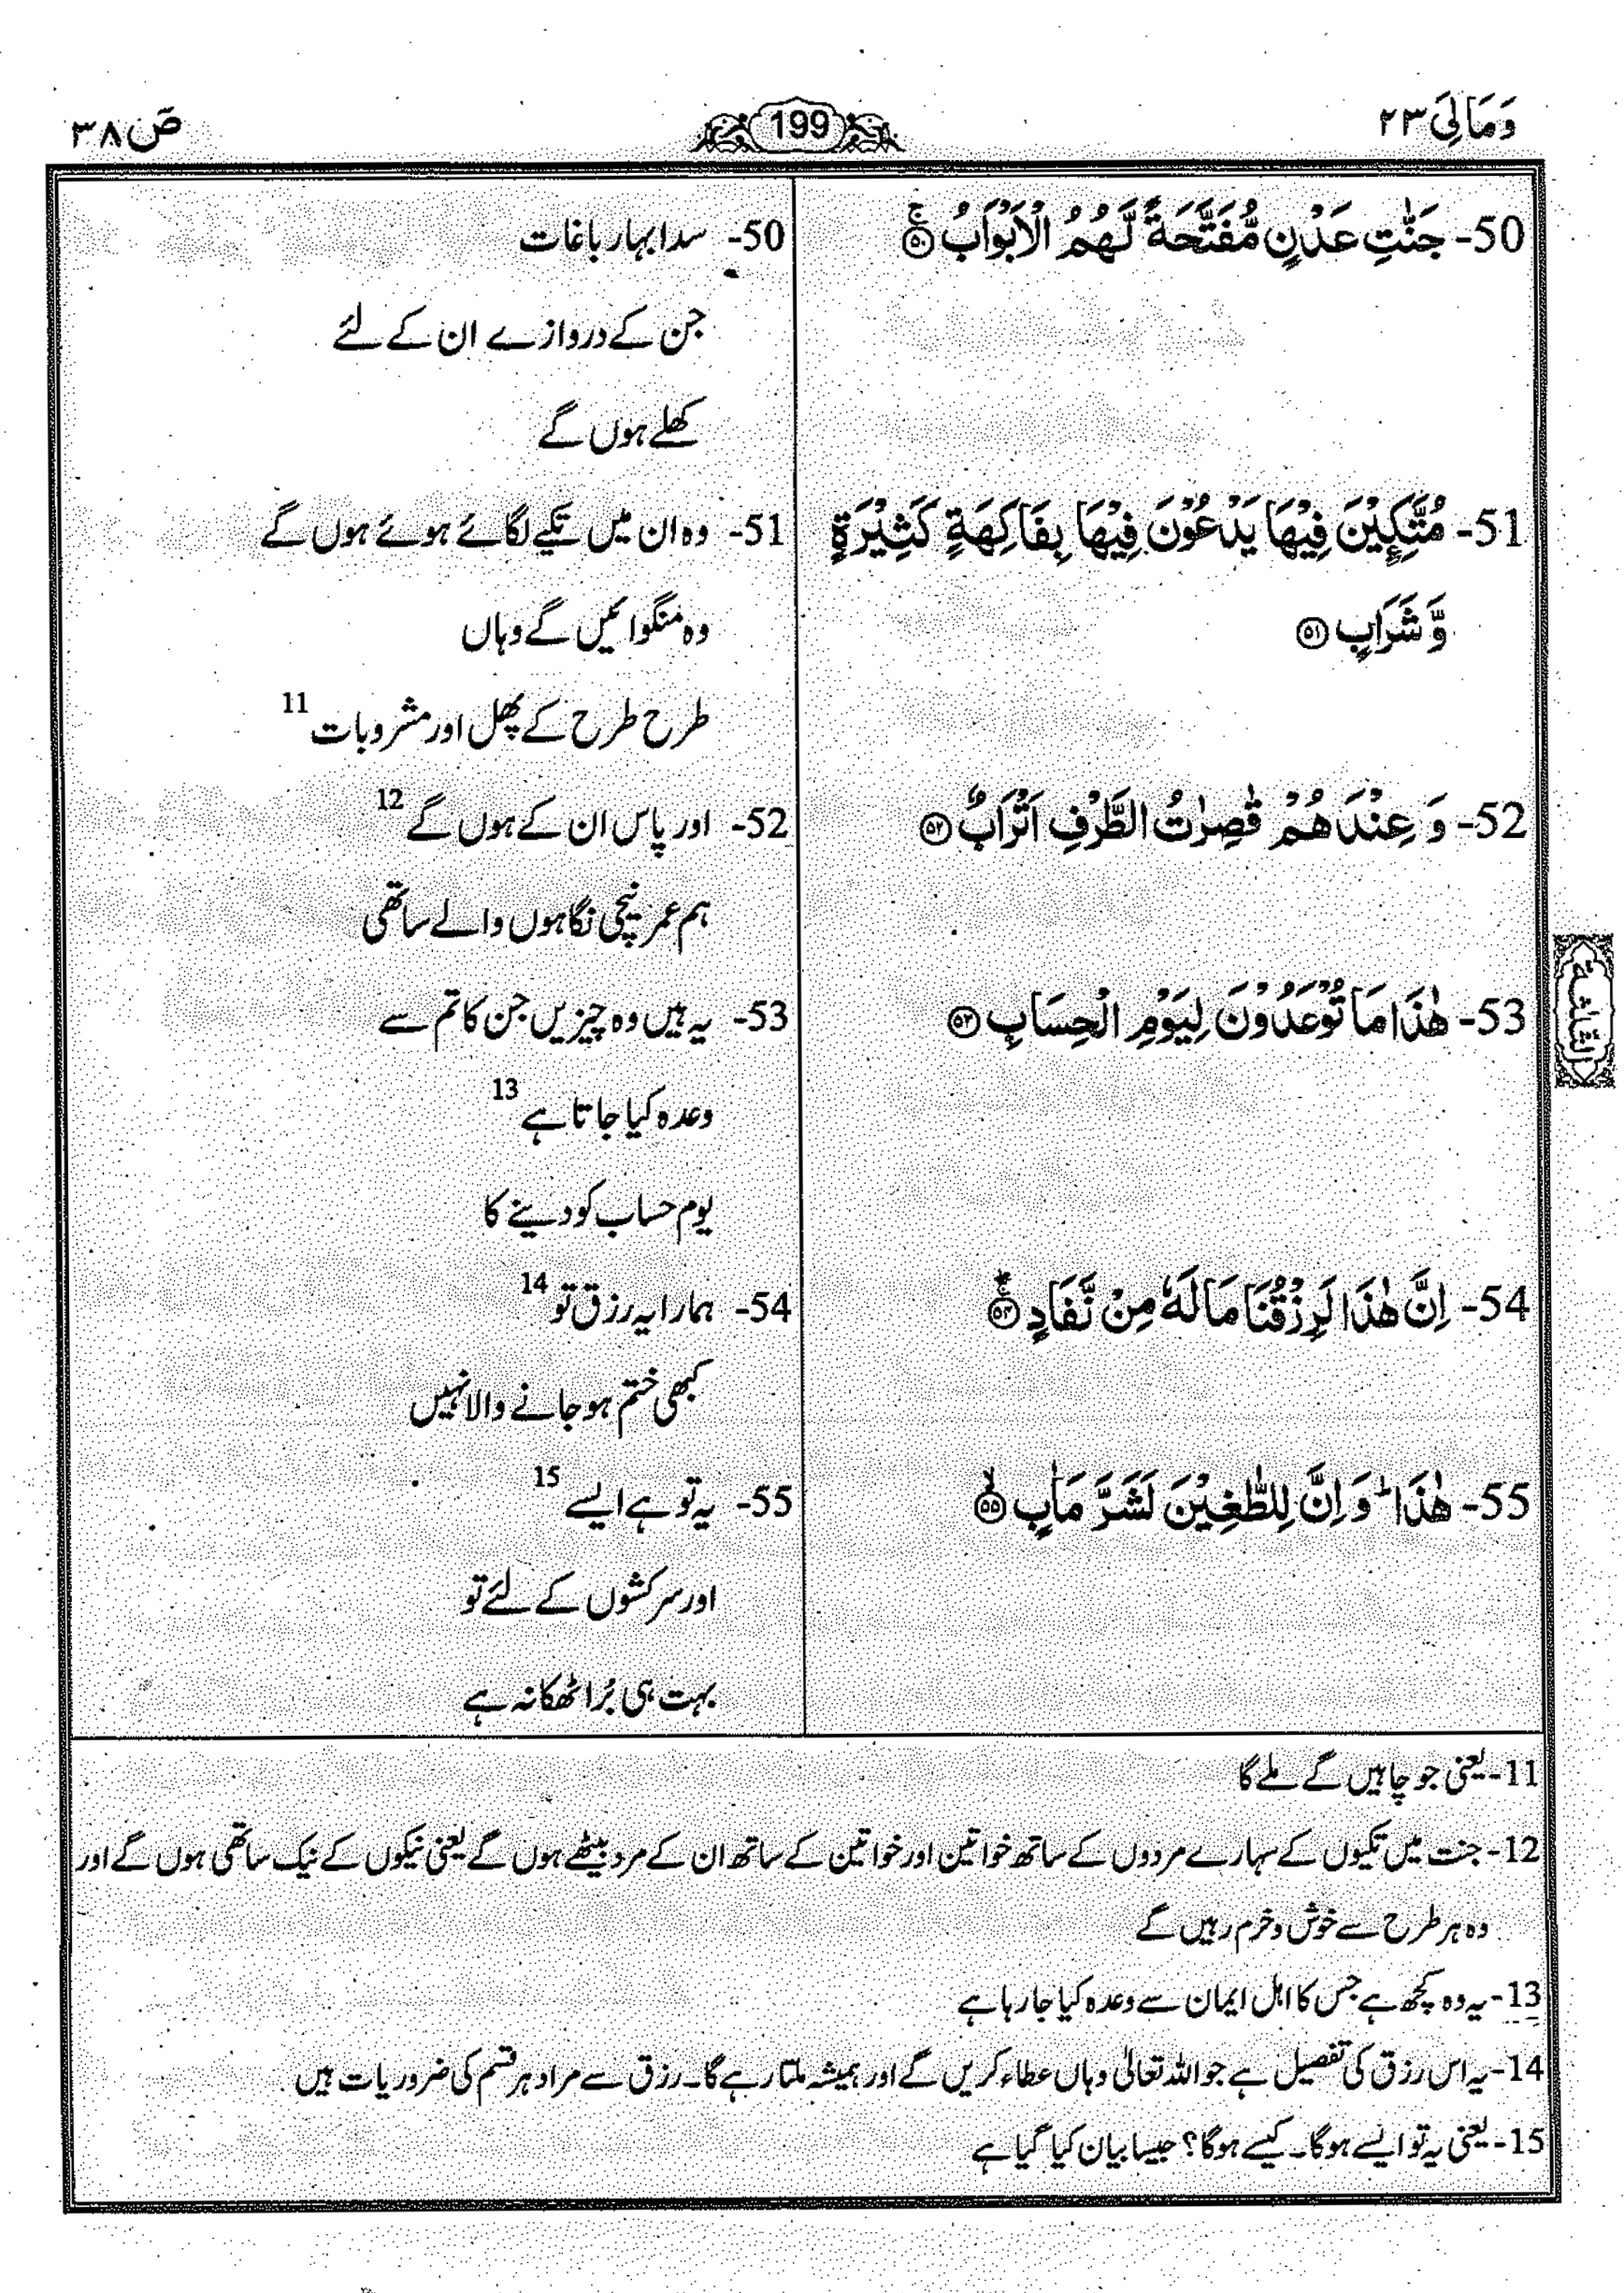 وَمَالِیَ ٢٣
199
صٓ ٣٨
50- جَنّٰتِ عَدْنٍ مُّفَتَّحَةً لَّهُمُ الْاَبْوَابُ ۚ ﴿٥٠﴾
51- مُتَّكِـِٕیْنَ فِیْهَا یَدْعُوْنَ فِیْهَا بِفَاكِهَةٍ كَثِیْرَةٍ
وَّ شَرَابٍ ﴿٥١﴾
52- وَ عِنْدَهُمْ قٰصِرٰتُ الطَّرْفِ اَتْرَابٌ ﴿٥٢﴾
53- هٰذَا مَا تُوْعَدُوْنَ لِیَوْمِ الْحِسَابِ ﴿٥٣﴾
54- اِنَّ هٰذَا لَرِزْقُنَا مَا لَهٗ مِنْ نَّفَادٍ ﴿٥٤﴾
55- هٰذَا ؕ وَ اِنَّ لِلطّٰغِیْنَ لَشَرَّ مَاٰبٍ ۙ ﴿٥٥﴾
50- سدا بہار باغات
جن کے دروازے ان کے لئے
کھلے ہوں گے
51- وہ ان میں تکیے لگائے ہوئے ہوں گے
وہ منگوائیں گے وہاں
طرح طرح کے پھل اور مشروبات 11
52- اور پاس ان کے ہوں گے 12
ہم عمر نیچی نگاہوں والے ساتھی
53- یہ ہیں وہ چیزیں جن کا تم سے
وعدہ کیا جاتا ہے 13
یوم حساب کو دینے کا
54- ہمارا یہ رزق تو 14
کبھی ختم ہو جانے والا نہیں
55- یہ تو ہے ایسے 15
اور سرکشوں کے لئے تو
بہت ہی بُرا ٹھکانہ ہے
الثلثة
11- یعنی جو چاہیں گے ملے گا
12- جنت میں تکیوں کے سہارے مردوں کے ساتھ خواتین اور خواتین کے ساتھ ان کے مرد بیٹھے ہوں گے یعنی نیکوں کے نیک ساتھی ہوں گے اور
وہ ہر طرح سے خوش و خرم رہیں گے
13- یہ وہ کچھ ہے جس کا اہل ایمان سے وعدہ کیا جا رہا ہے
14- یہ اس رزق کی تفصیل ہے جو اللہ تعالیٰ وہاں عطاء کریں گے اور ہمیشہ ملتا رہے گا۔ رزق سے مراد ہر قسم کی ضروریات ہیں
15- یعنی یہ تو ایسے ہوگا۔ کیسے ہوگا؟ جیسا بیان کیا گیا ہے